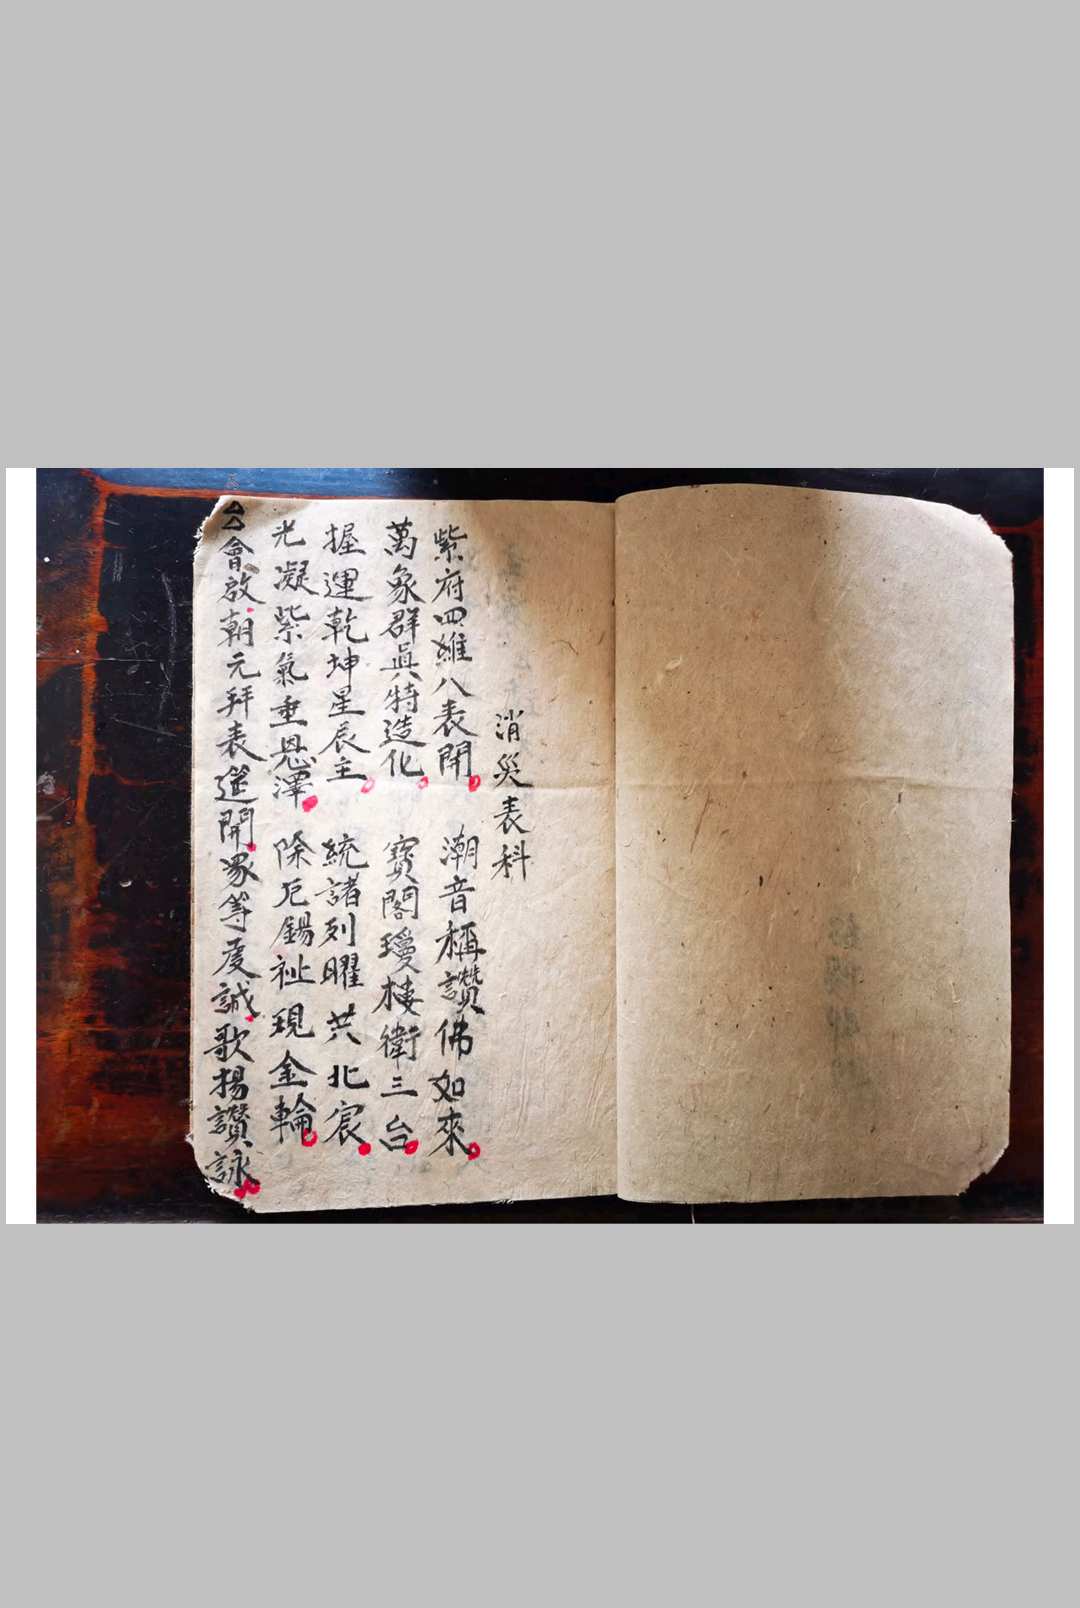 消災表科
紫府四維八表開 潮音稱讚佛如來
萬象群真特造化 寶閣瓊樓衛三台
握運乾坤星辰主 統諸列曜共北宸
光凝紫氣垂恩澤 除厄錫祉現金輪
會啟朝元拜表筵開眾等虔誠歌揚讚詠